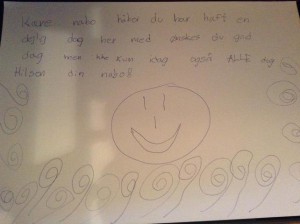 Kære nabo håber du har haft en
dejlig dag her med ønskes du god
dag men ikke kun idag også Altid dig
Hilsen din nabo!!